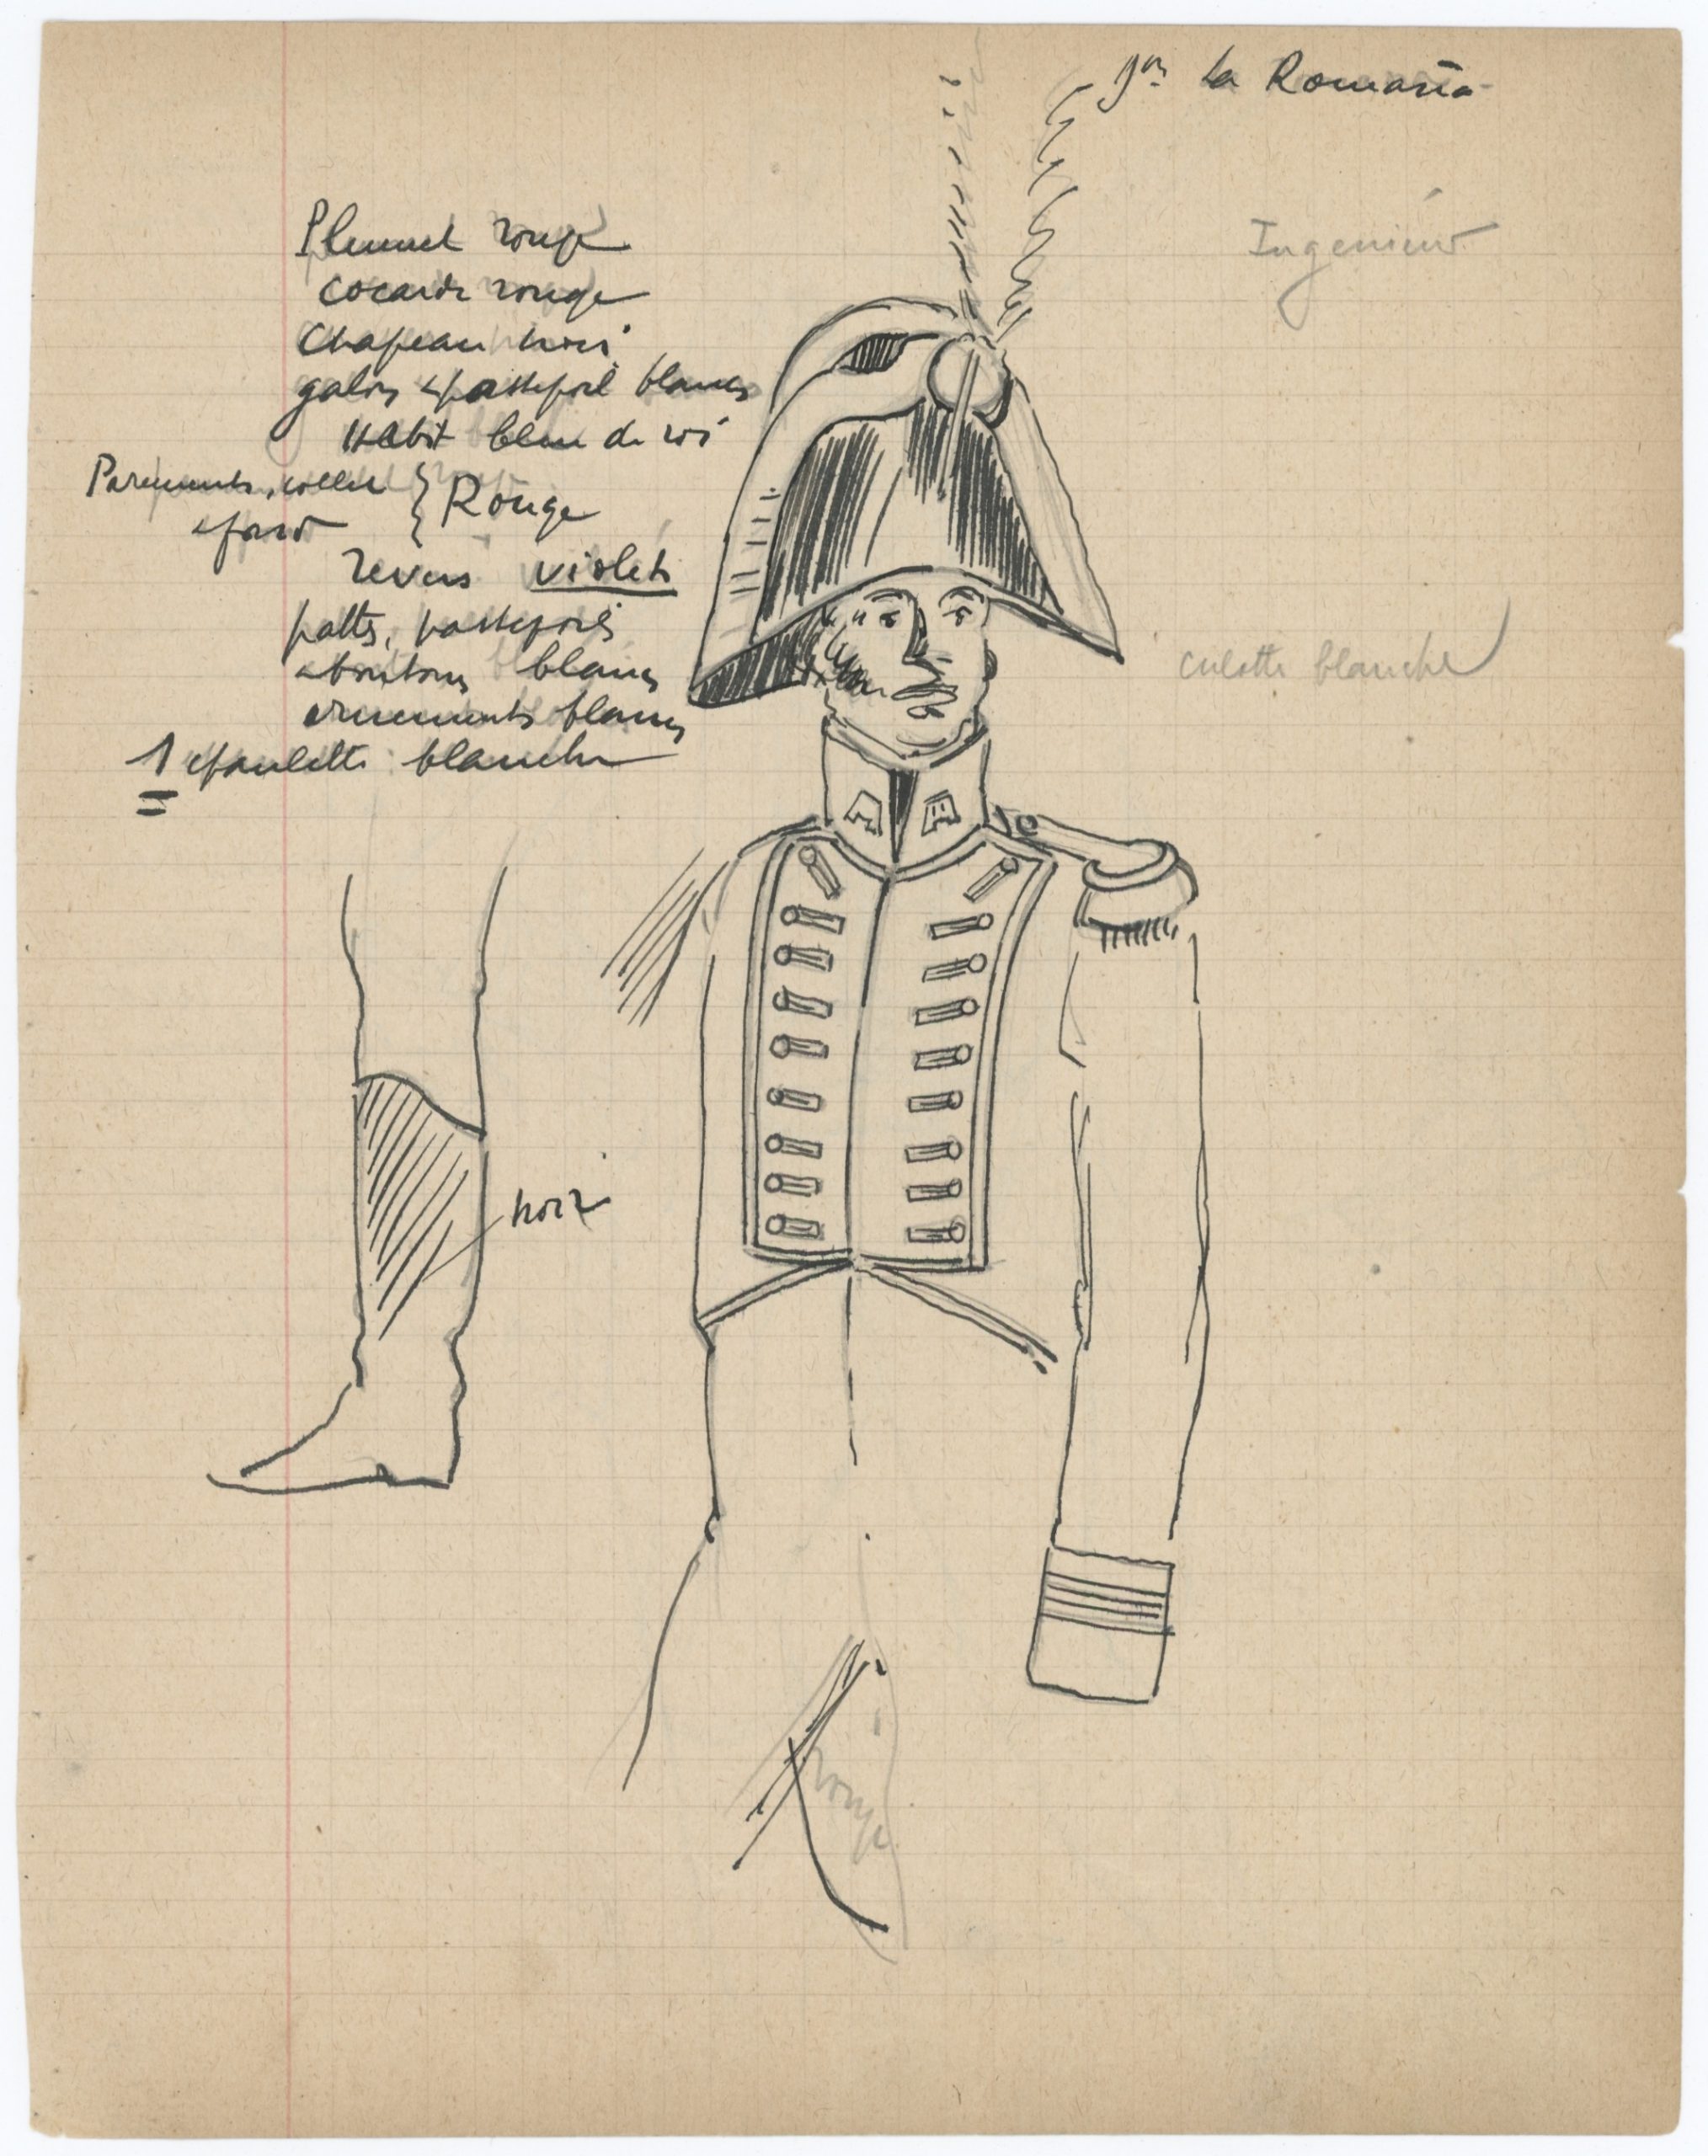 gal la Romana
Ingenieur
Plumet rouge
cocarde rouge
Chapeau noir
galon & passepoil blancs
Habit bleu de roi
Parements, collet } Rouge
revers violets
pattes, passepoils
& boutons blancs
ornements blancs
1 epaulette blanche
culotte blanche
noir
rouge